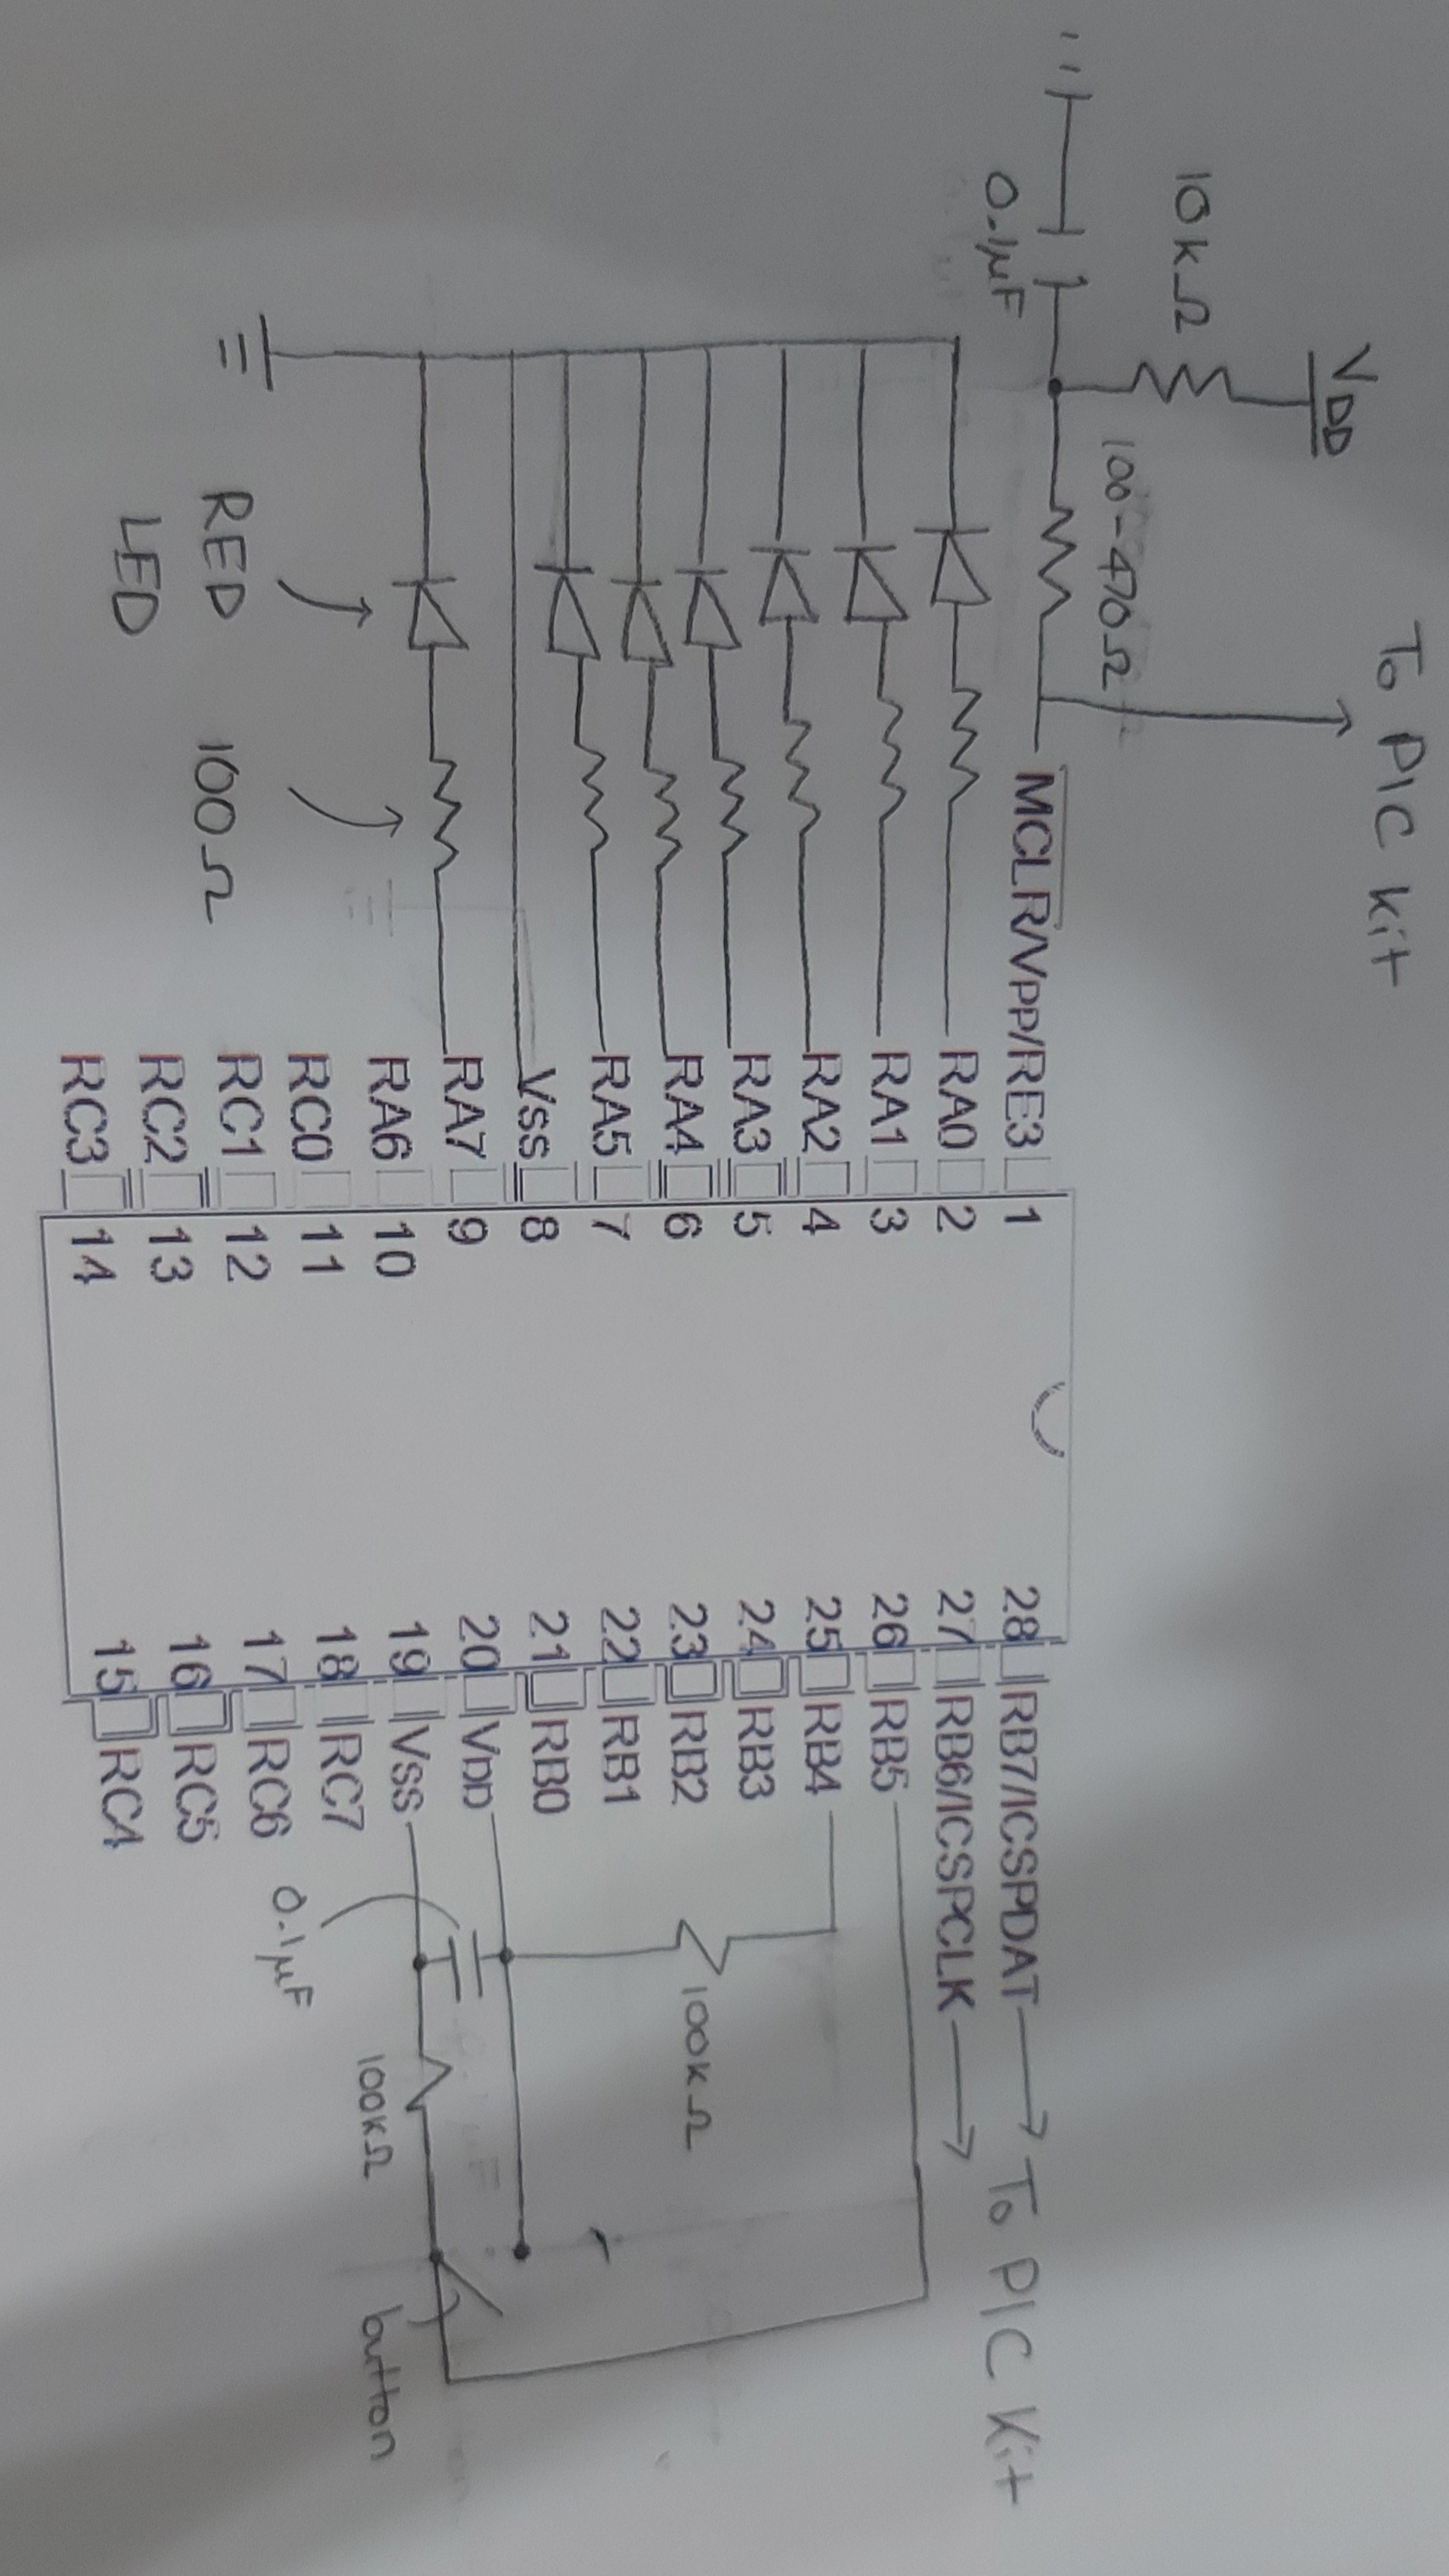 To PIC Kit
VDD
10kΩ
100-470Ω
0.1μF
MCLR/VPP/RE3 1
RA0 2
RA1 3
RA2 4
RA3 5
RA4 6
RA5 7
Vss 8
RA7 9
RA6 10
RC0 11
RC1 12
RC2 13
RC3 14
RED
LED
100Ω
28 RB7/ICSPDAT
27 RB6/ICSPCLK
To PIC Kit
26 RB5
25 RB4
24 RB3
23 RB2
22 RB1
21 RB0
20 VDD
19 VSS
18 RC7
17 RC6
16 RC5
15 RC4
100kΩ
0.1μF
100kΩ
button